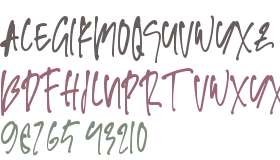 ACEGIKMOQSUVWXZ
BDFHJLNPRTVWXYX
98765 43210